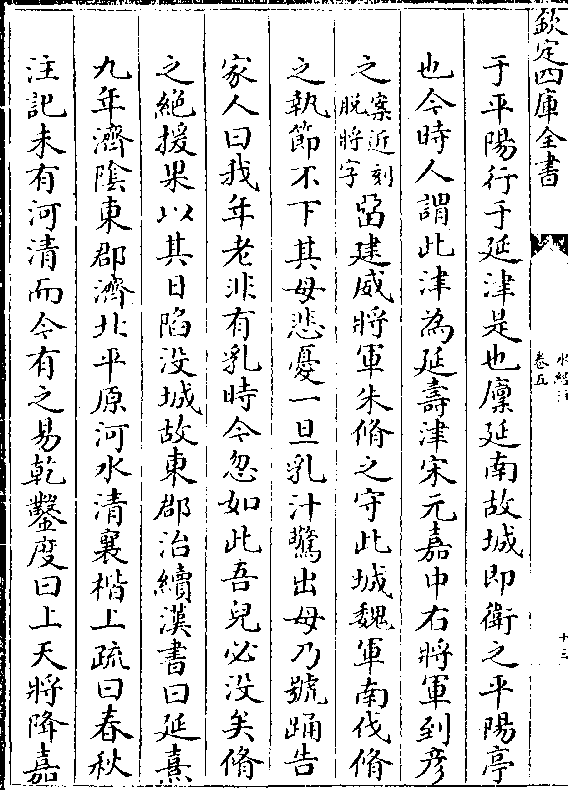 欽定四庫全書
水經注
卷五
十三
于平陽行于延津是也廩延南故城即衛之平陽亭
也今時人謂此津為延壽津宋元嘉中右將軍到彥
之案近刻脫將字留建威將軍朱脩之守此城魏軍南伐脩
之執節不下其母悲憂一旦乳汁驚出母乃號踊告
家人曰我年老非有乳時今忽如此吾兒必沒矣脩
之絕援果以其日陷没城故東郡治續漢書曰延熹
九年濟陰東郡濟北平原河水清襄楷上疏曰春秋
注記未有河清而今有之易乾鑿度曰上天將降嘉